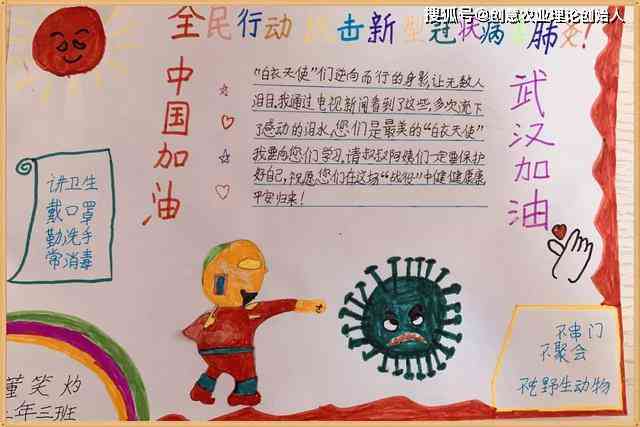 搜狐号@创意农业理论创始人
全民行动 抗击新型冠状病毒肺炎!
中国加油
"白衣天使"们逆向而行的身影让无数人
泪目,我通过电视新闻看到了这些,多次流下
了感动的泪水,您们是最美的"白衣天使"
我要向您们学习,请叔叔阿姨们一定要保护
好自己,祝愿您们在这场"战役"中健健康康
平安归来!
武汉加油
讲卫生
戴口罩
勤洗手
常消毒
不串门
不聚会
不吃野生动物
董笑灼
年三班